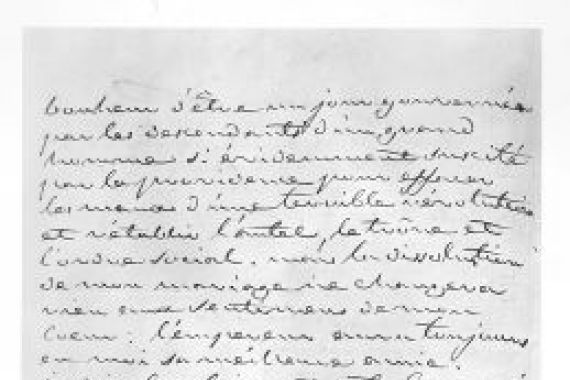 bonheur d'être un jour gouvernée
par les descendants d'un grand
homme si évidemment suscité
par la providence pour effacer
les maux d'une terrible révolution
et rétablir l'autel, le trône et
l'ordre social. mais la dissolution
de mon mariage ne changera
rien aux sentimens de mon
coeur: l'empereur aura toujours
en moi sa meilleure amie.